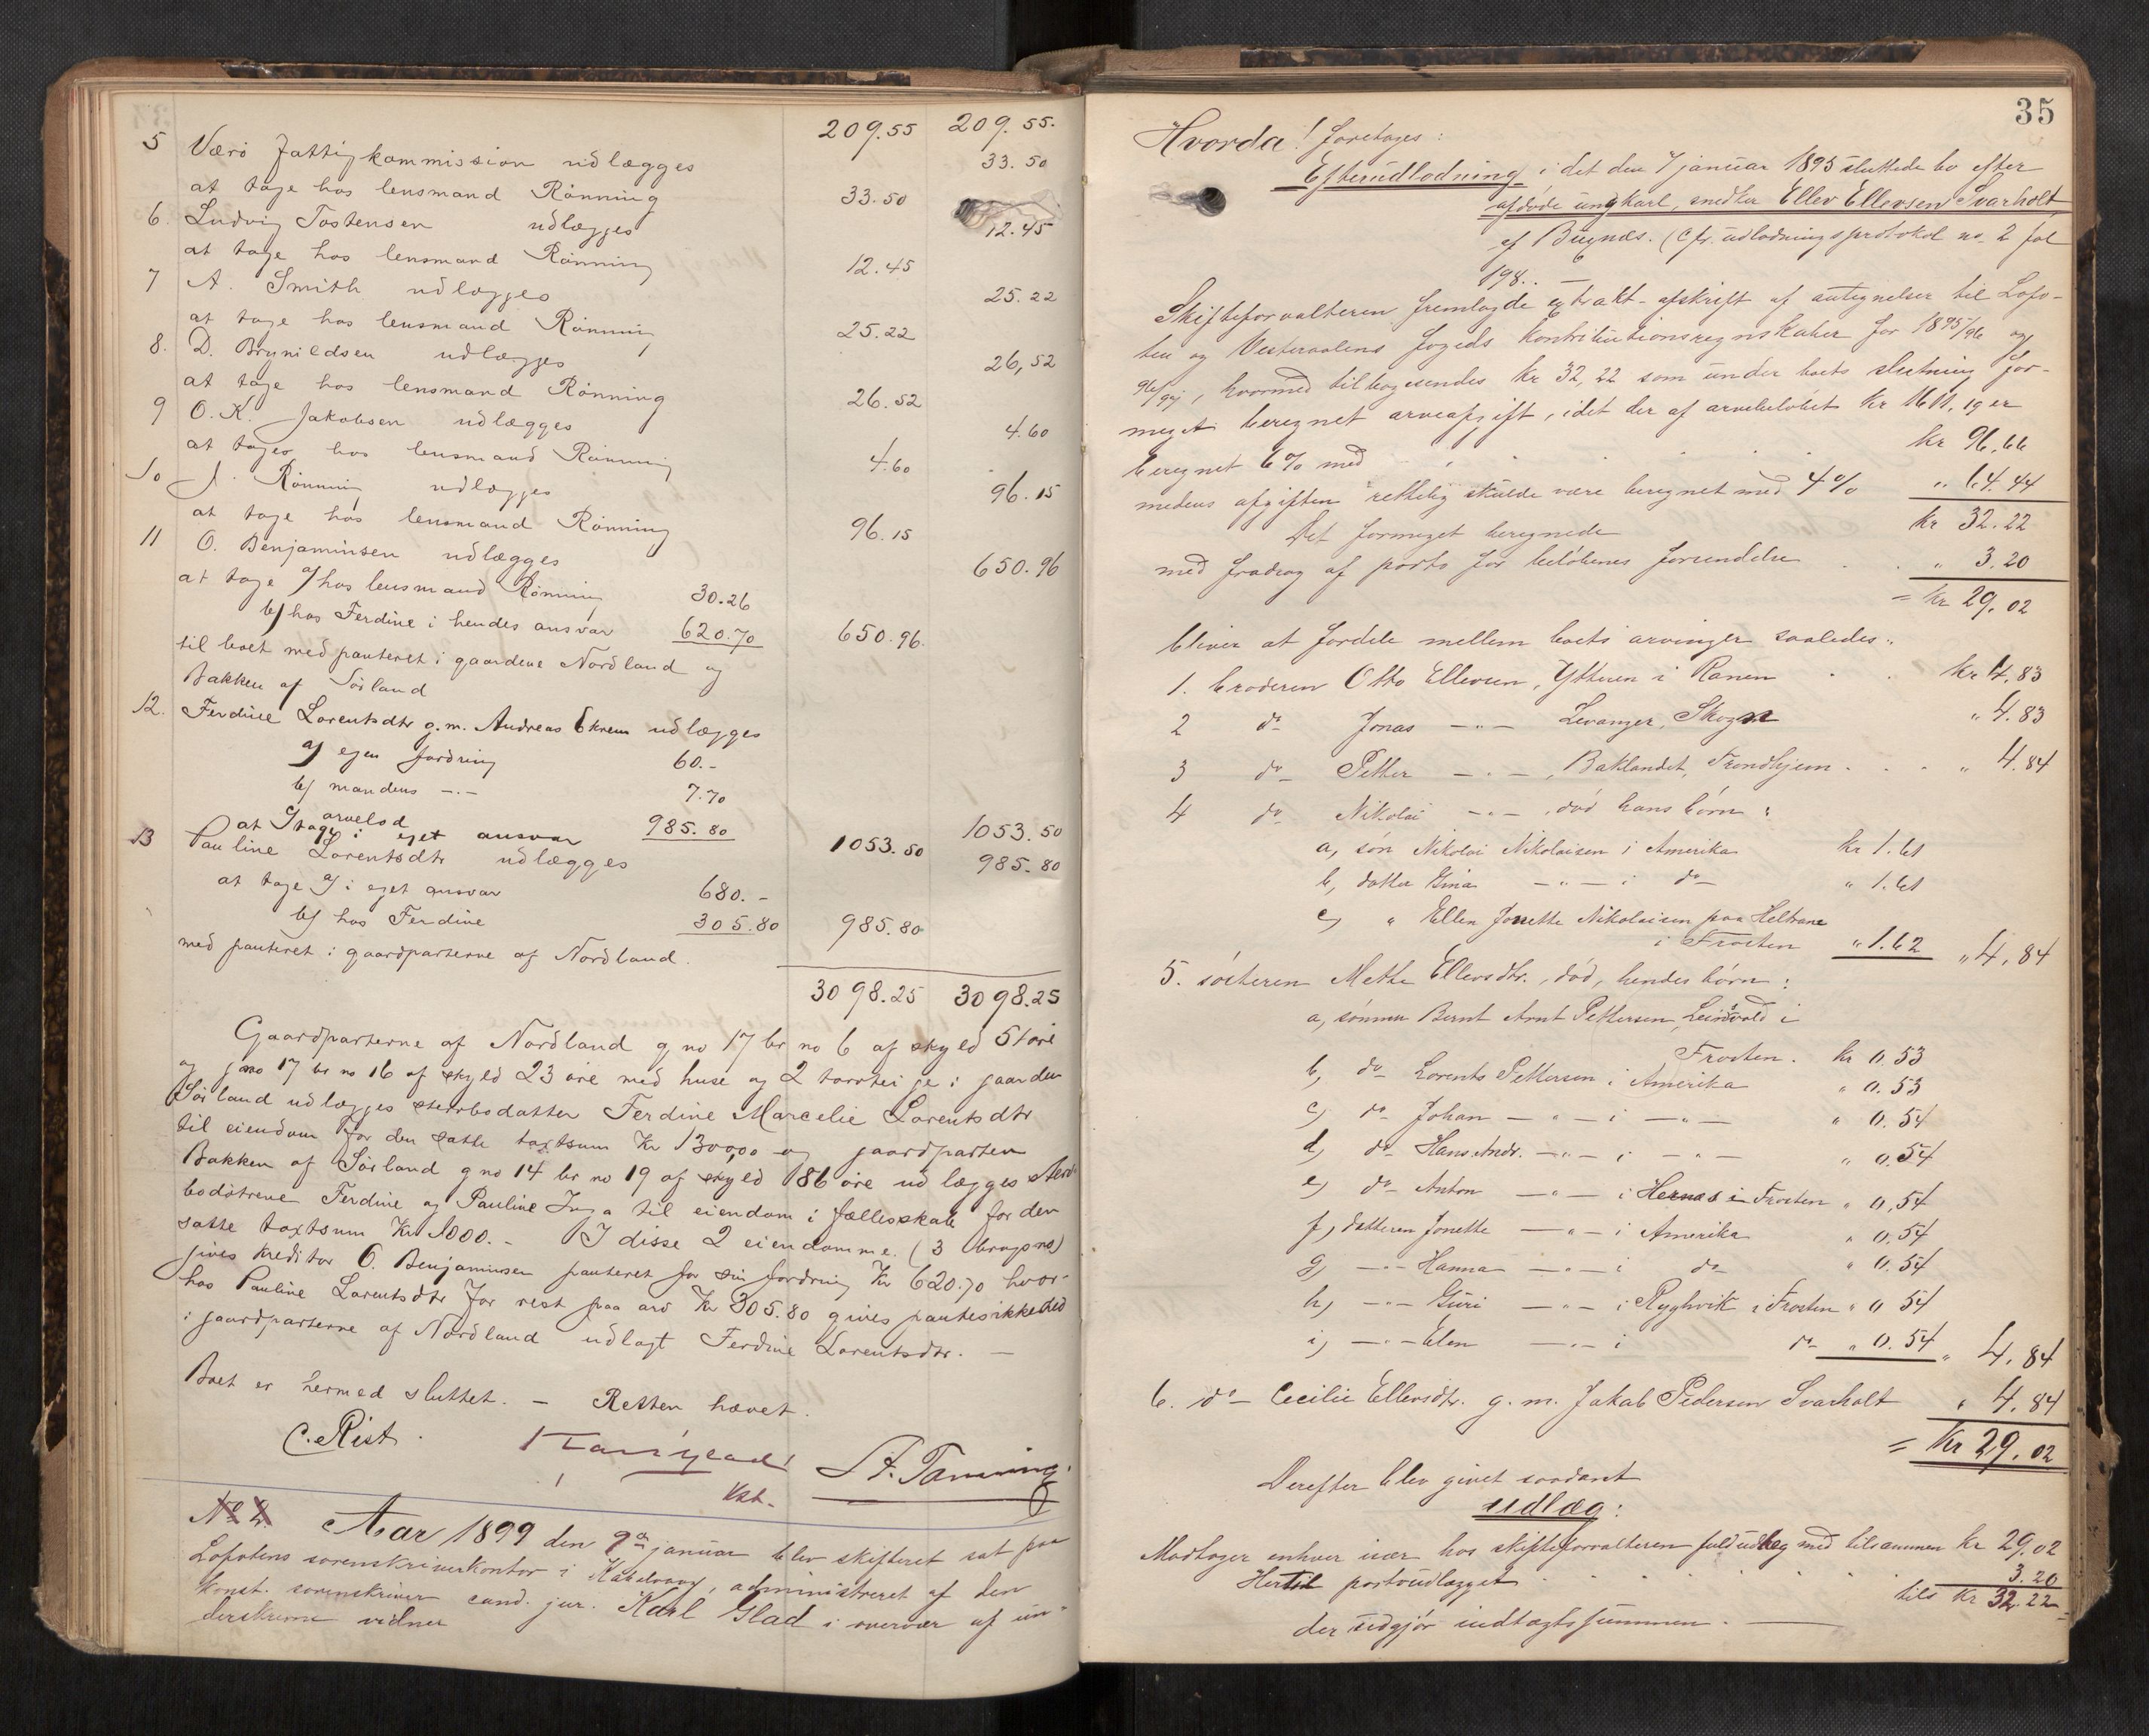 209.55 209.55.
5 Værö Fattigkommission udlægges 33.50
at tage hos lensmand Rönning 33.50
6. Ludvig Tostensen udlægges 12.45
at tage hos lensmand Rönning 12.45
7 A. Smith udlægges 25.22
at tage hos lensmand Rönning 25.22
8. D. Brynildsen udlægges 26,52
at tage hos lensmand Rönning 26.52
9 O. K. Jakobsen udlægges 4.60
at tages hos lensmand Rönning 4.60
10 J. Rönning udlægges 96.15
at tage hos lensmand Rönning 96.15
11 O. Benjaminsen udlægges 650.96
at tage a/ hos lensmand Rönning 30.26
b/ hos Ferdine i hendes ansvar 620.70 650.96.
til boet med panteret i gaardene Nordland og
Bakken af Sörland
12. Ferdine Lorentsdtr g.m. Andreas Ekrem udlægges
a/ egen fordring 60.-
b/ mandens -„- 7.70
c/ arvelod 985.80 1053.50
at tage i eget ansvar 1053.50
13 Pauline Lorentsdtr udlægges 985.80
at tage a/ i eget ansvar 680.-
b/ hos Ferdine 305.80 985.80
med panteret i gaardparterne af Nordland.
3098.25 3098.25
Gaardparterne af Nordland g no 17 br no 6 af skyld 51 öre
og g no 17 br no 16 af skyld 23 öre med huse og 2 torvteige i gaarden
Sörland udlægges sterbodatter Ferdine Marcelie Lorentsdtr
til eiendom for den satte taxtsum Kr 1300,00 og gaardparten
Bakken af Sörland g no 14 br no 19 af skyld 86 öre udlægges ster-
bodötrene Ferdine og Pauline Inga til eiendom i fællesskab for den
satte taxtsum Kr 1000.- I disse 2 eiendomme (3 brugsno)
gives kreditor O. Benjaminsen panteret for sin fordring Kr 620.70 hvor-
hos Pauline Lorentsdtr for rest paa arv Kr 305.80 gives pantesikkerhed
i gaardparterne af Nordland udlagt Ferdine Lorentsdtr. -
Boet er hermed sluttet. - Retten hævet.
C. Rist. Karl Glad
kst.
No 2. Aar 1899 den 9de januar blev skifteret sat paa
Lofotens sorenskriverkontor i Kabelvaag, administreret af den
konst. sorenskriver cand. jur. Karl Glad i overvær af un-
derskrevne vidner
35
Hvorda! foretoges:
Efterudlodning i det den 7 januar 1895 sluttede bo efter
afdöde ungkarl, snedker Ellev Ellevsen Svarholt
af Bugnæs. (cfr. udlodningsprotokol no. 2 fol
198.. -
Skifteforvalteren fremlagde extrakt-afskrift af antegnelser til Lofo-
ten og Vesteraalens fogeds kontributionsregnskaber for 1895/96 og
96/97, hvormed tilbagesendes kr 32,22 som under boets slutning for-
meget beregnet arveafgift, idet der af arvebelöbet kr 1611,19 er
beregnet 6% med kr 96,66
medens afgiften rettelig skulde være beregnet med 4% „ 64.44
Det formeget beregnede kr 32.22
med fradrag af porto for belöbenes forsendelse „ 3.20
= kr 29.02
bliver at fordele mellem boets arvinger saaledes:
1. broderen Otto Ellevsen, Ytteren i Ranen kr 4,83
2 do Jonas -„- Levanger, Skogn „ 4.83
3 do Petter -„-, Baklandet, Trondhjem „ 4.84
4 do Nikolai -„-, död hans börn:
a, sön Nikolai Nikolaisen i Amerika kr 1.61
b, datter Gina -„- i do „ 1.61
c, „ Ellen Jonette Nikolaisen paa Heltrane
i Frosten „ 1.62 „ 4,84
5. sösteren Methe Ellevsdtr., död, hendes börn:
a, sönnen Bernt Arnt Pettersen, Leinsvold i
Frosten. kr 0.53
b, do Lorents Pettersen i Amerika „ 0.53
c, do Johan -„- i -„- „ 0.54
d, do Hans Andr. -„- i -„- „ 0.54
e, do Anton -„- i Hernæs i Frosten „ 0,54
f, datteren Jonette -„- i Amerika „ 0.54
g, -„- Hanna -„- i do „ 0.54
h, -„- Guri -„- i Ryghvik i Frosten „ 0 54
i, -„- Elen -„- i do „ 0.54 „ 4,84
6. do Cecilie Ellevsdtr. g.m. Jakob Pedersen Svarholt „ 4,84
= Kr 29.02
Derefter blev givet saadant
udlæg:
Modtager enhver især hos skifteforvalteren fuld udlæg med tilsammen kr 29,02
Hertil portoudlægget 3.20
tils kr 32.22
der udgjör indtægtssummen.